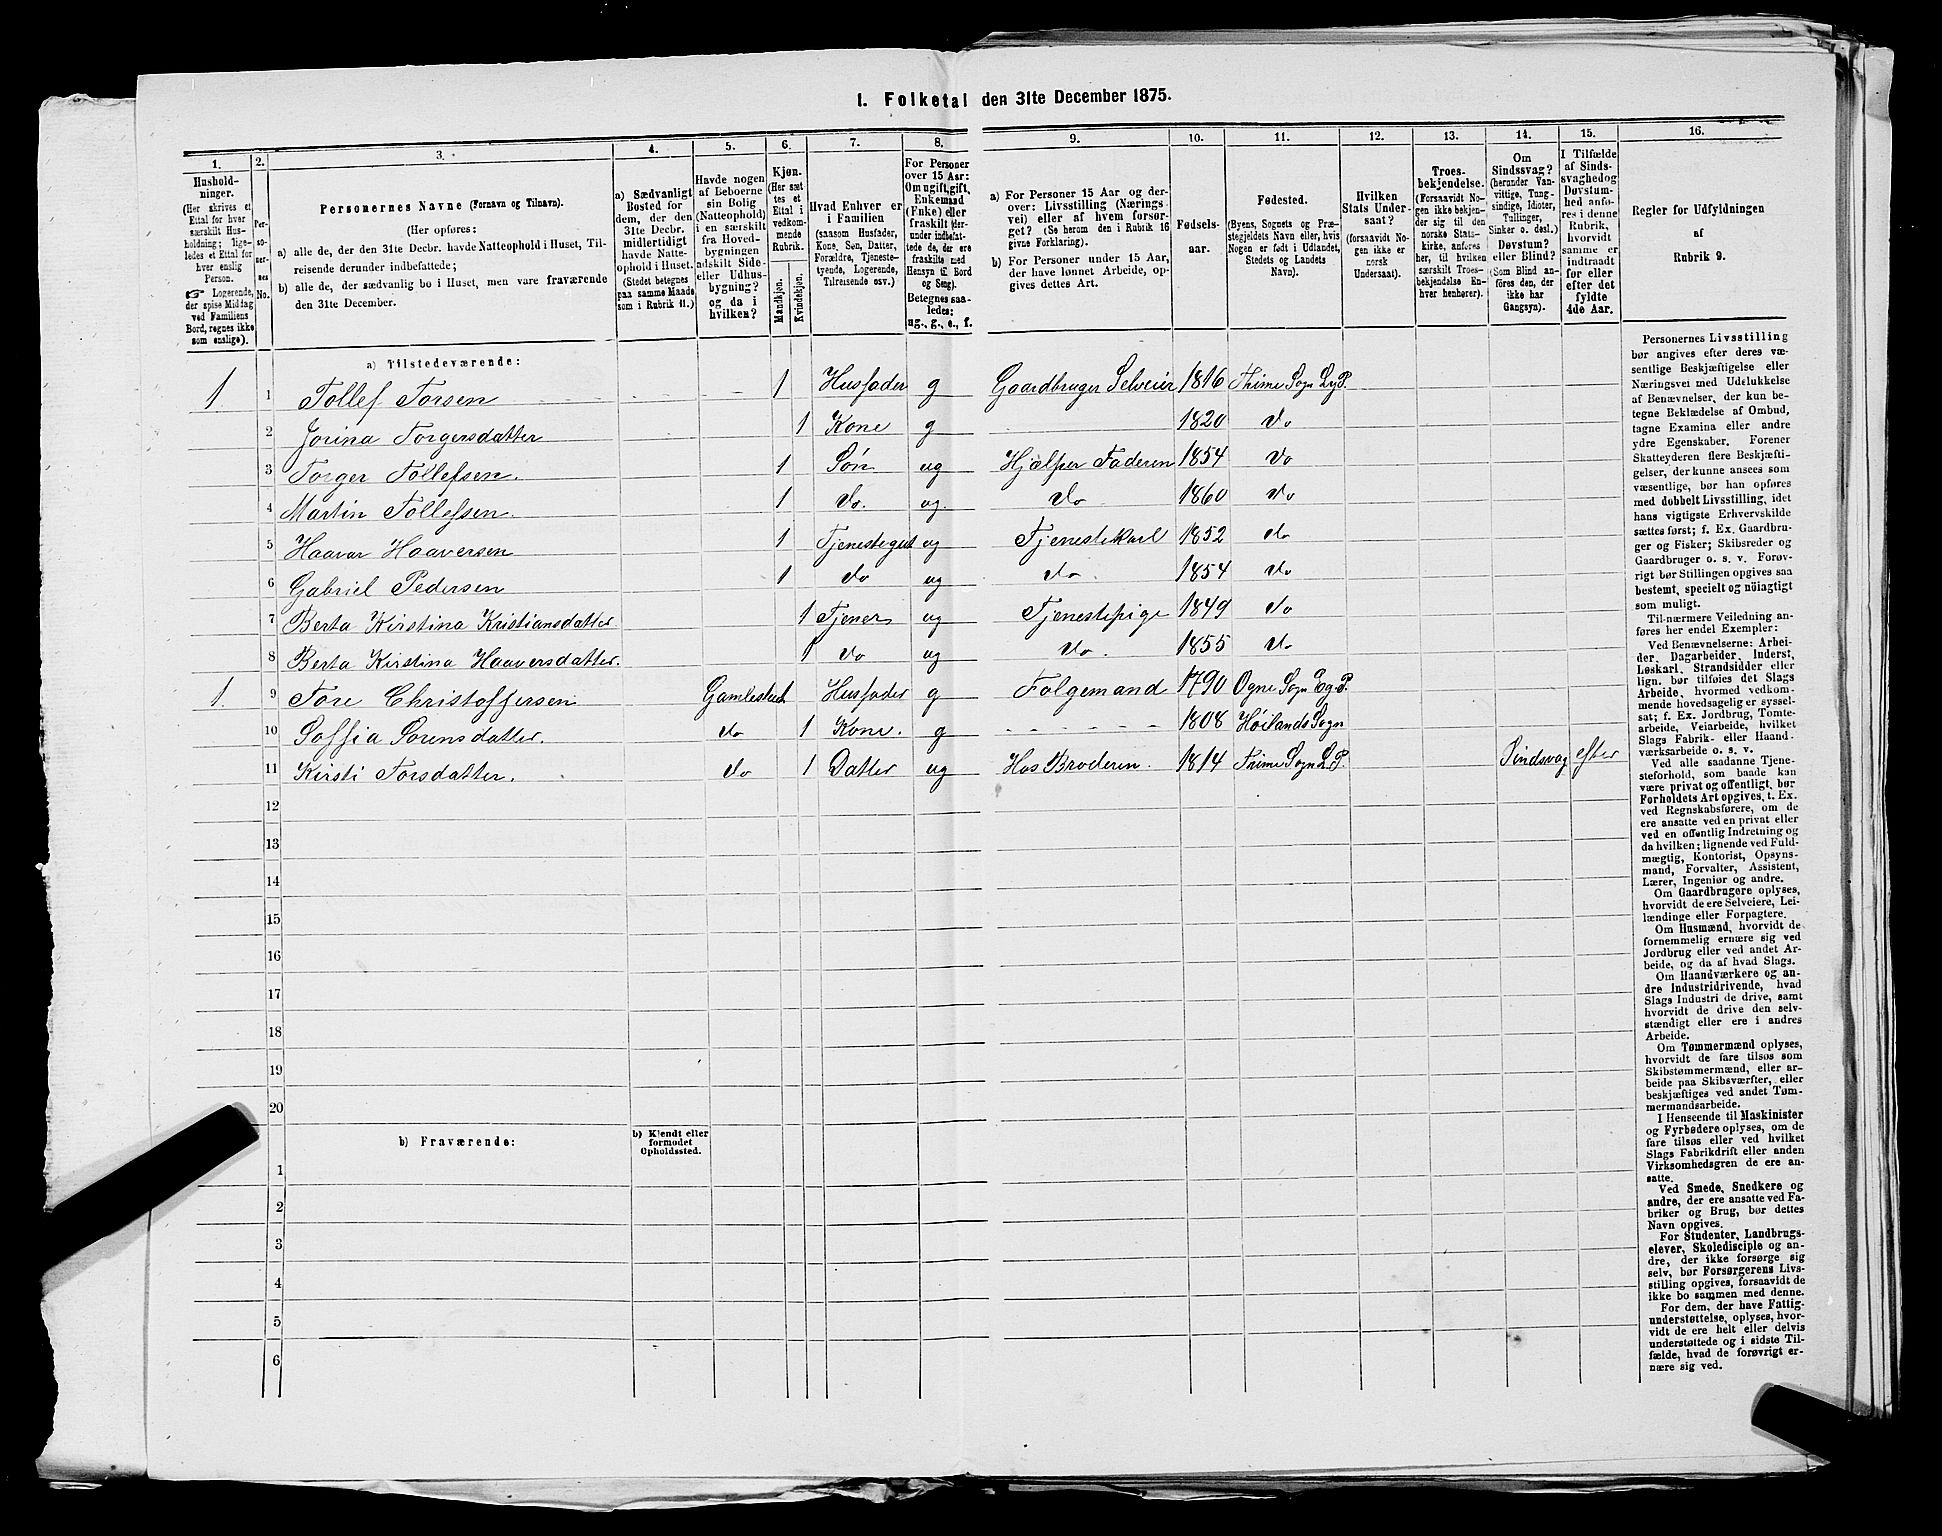 I. Folketal den 31te December 1875.
1.
2.
3.
4.
5.
6.
7.
8.
9.
10.
11.
12.
13.
14.
15.
16.
Hushold-
ninger.
(Her skrives et
Ettal for hver
særskilt Hus-
holdning; lige-
ledes et Ettal for
hver enslig
Person.
☞ Logerende,
der spise Middag
ved Familiens
Bord, regnes ikke
som enslige).
Per-
so-
ner-
nes
No.
Personernes Navne (Fornavn og Tilnavn).
(Her opføres:
a) alle de, der den 31te Decbr. havde Natteophold i Huset, Til-
reisende derunder indbefattede;
b) alle de, der sædvanlig bo i Huset, men vare fraværende
den 31te December.
a) Sædvanligt
Bosted for
dem, der den
31te Decbr.
midlertidigt
havde Natte-
ophold i Huset.
(Stedet betegnes
paa samme Maade
som i Rubrik 11.)
Havde nogen
af Beboerne
sin Bolig
(Natteophold)
i en særskilt
fra Hoved-
bygningen
adskilt Side-
eller Udhus-
bygning?
og da i
hvilken?
Kjøn.
(Her sæt-
tes et
Ettal i
vedkom-
mende
Rubrik.
Mandkjøn.
Kvindekjøn.
Hvad Enhver er
i Familien
(saasom Husfader,
Kone, Søn, Datter,
Forældre, Tjeneste-
tyende, Logerende,
Tilreisende osv.)
For Personer
over 15 Aar:
Om ugift, gift,
Enkemand
(Enke) eller
fraskilt (der-
under indbefat-
tede de, der ere
fraskilte med
Hensyn til Bord
og Seng).
Betegnes saa-
ledes:
ug., g., e., f.
a) For Personer 15 Aar og der-
over: Livsstilling (Nærings-
vei) eller af hvem forsør-
get? (Se herom den i Rubrik 16
givne Forklaring).
b) For Personer under 15 Aar,
der have lønnet Arbeide, op-
gives dettes Art.
Fødsels-
aar.
Fødested.
(Byens, Sognets og Præ-
stegjeldets Navn eller, hvis
Nogen er født i Udlandet,
Stedets og Landets
Navn).
Hvilken
Stats Under-
saat?
(forsaavidt No-
gen ikke er
norsk
Undersaat).
Troes-
bekjendelse.
(Forsaavidt No-
gen ikke bekjen-
der sig til den
norske Stats-
kirke, anføres
her, til hvilken
særskilt Troes-
bekjendelse En-
hver henhører).
Om
Sindssvag?
(herunder Van-
vittige, Tung-
sindige, Idioter,
Tullinger,
Sinker o. desl.)
Døvstum?
eller Blind?
(Som Blind an-
føres den, der
ikke har
Gangsyn).
I Tilfælde
af Sinds-
svaghed og
Døvstum-
hed anfø-
res i denne
Rubrik,
hvorvidt
samme er
indtraadt
før eller
efter det
fyldte
4de Aar.
Regler for Udfyldningen
af
Rubrik 9.
a) Tilstedeværende:
1 1 Tollef Torsen 1 Husfader g Gaardbruger Selveier 1816 Thime Sogn Ly P.
2 Jorina Torgersdatter 1 Kone g 1820 do
3 Torger Tollefsen. 1 Søn ug Hjælper Faderen 1854 do
4 Martin Tollefsen. 1 do. ug. do 1860 do
5 Haavar Haaversen 1 Tjenestegut ug Tjenestekarl 1852 do
6 Gabriel Pedersen 1 do ug do. 1854 do
7 Berta Kirstina Kristiansdatter. 1 Tjener ug Tjenestepige 1849 do
8 Berta Kirstina Haaversdatter. 1 do ug do. 1855 do
1 9 Tore Christoffersen Husfader g Folgemand 1790 Ogne Sogn Eg. P.
10 Soffia Sorensdatter. do 1 Kone. g 1808 Höilands Sogn
11 Kirsti Torsdatter. do 1 Datter ug Hos Broderen. 1814 Thime Sogn L.P. Sindsvag efter
12
13
14
15
16
17
18
19
20
b) Fraværende:
b) Kjendt eller
formodet
Opholdssted.
1
2
3
4
5
6
Personernes Livsstilling
bør angives efter deres væ-
sentlige Beskjæftigelse eller
Næringsvei med Udelukkelse
af Benævnelser, der kun be-
tegne Beklædelse af Ombud,
tagne Examina eller andre
ydre Egenskaber. Forener
Skatteyderen flere Beskjæfti-
gelser, der kunne ansees som
væsentlige, bør han opføres
med dobbelt Livsstilling, idet
hans vigtigste Erhvervskilde
sættes først; f. Ex. Gaardbru-
ger og Fisker; Skibsreder og
Gaardbruger o. s. v. Forøv-
rigt bør Stillingen opgives saa
bestemt, specielt og nöiagtigt
som muligt.
Til nærmere Veiledning an-
føres her endel Exempler:
Ved Benævnelserne: Arbei-
der, Dagarbeider, Inderst,
Løskarl, Strandsidder eller
lign. bør tilføies det Slags
Arbeide, hvormed vedkom-
mende hovedsagelig er syssel-
sat; f. Ex. Jordbrug, Tomte-
arbeide, Veiarbeide, hvilket
Slags Fabrik- eller Haand-
værksarbeide o. s. v.
Ved alle saadanne Tjene-
steforhold, som baade kan
være privat og offentligt, bør
Forholdets Art opgives, t. Ex.
ved Regnskabsførere, om de
ere ansatte ved en privat eller
ved en offentlig Indretning og
da hvilken; lignende ved Fuld-
mægtig, Kontorist, Opsyns-
mand, Forvalter, Assistent,
Lærer, Ingeniør og andre.
Om Gaardbrugere oplyses,
hvorvidt de ere Selveiere, Lei-
lændinge eller Forpagtere.
Om Husmænd, hvorvidt de
fornemmelig ernære sig ved
Jordbrug eller ved andet Ar-
beide, og da af hvad Slags.
Om Haandværkere og an-
dre Industridrivende, hvad
Slags Industri de drive, samt
hvorvidt de drive den selv-
stændigt eller ere i andres
Arbeide.
Om Tømmermænd oplyses,
hvorvidt de fare tilsøs som
Skibstømmermænd, eller ar-
beide paa Skibsværfter, eller
beskjæftiges ved andet Tøm-
mermandsarbeide.
I Henseende til Maskinister
og Fyrbødere oplyses, om de
fare tilsøs eller ved hvilket
Slags Fabrikdrift eller anden
Virksomhedsgren de ere an-
satte.
Ved Smede, Snedkere og
andre, der ere ansatte ved Fa-
briker og Brug, bør dettes
Navn opgives.
For Studenter, Landbrugs-
elever, Skoledisciple og an-
dre, der ikke forsørge sig
selv, bør Forsørgerens Livs-
stilling opgives, forsaavidt de
ikke bo sammen med denne.
For dem, der have Fattig-
understøttelse, oplyses, hvor-
vidt de ere helt eller delvis
understøttede og i sidste Til-
fælde, hvad de forøvrigt er-
nære sig ved.